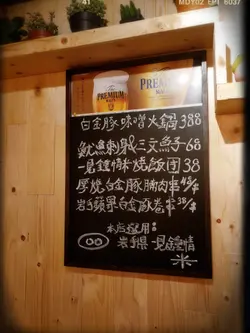 MOY02 EPL 6037
PREMIUM
PREMIUM
白金豚味噌火鍋388
魷魚刺身&三文魚子68
一見鍾情米燒飯団38
厚燒白金豚腩肉串45/4
岩手蘋果白金豚卷串38/4
本店選用:
岩手県一見鍾情